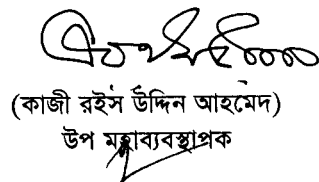 (কাজী রইস উদ্দিন আহমেদ)
উপ মহাব্যবস্থাপক